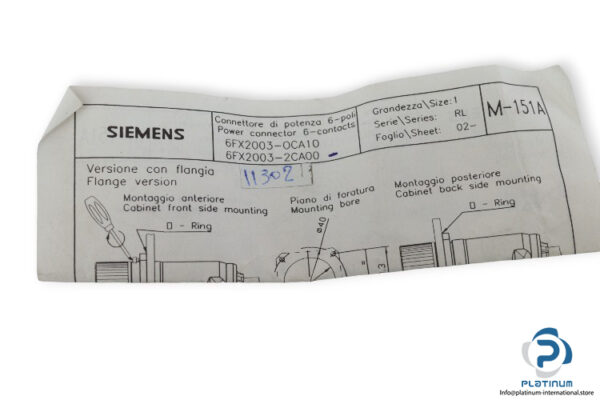 SIEMENS
Connettore di potenza 6-poli
Power connector 6-contacts
6FX2003-0CA10
6FX2003-2CA00 -
Grandezza\Size: 1
Serie\Series: RL
Foglio\Sheet: 02-
M-151A
Versione con flangia
Flange version
11302
Montaggio anteriore
Cabinet front side mounting
O - Ring
Piano di foratura
Mounting bore
ø40
3
Montaggio posteriore
Cabinet back side mounting
O - Ring
PLATINUM
Info@platinum-international.store